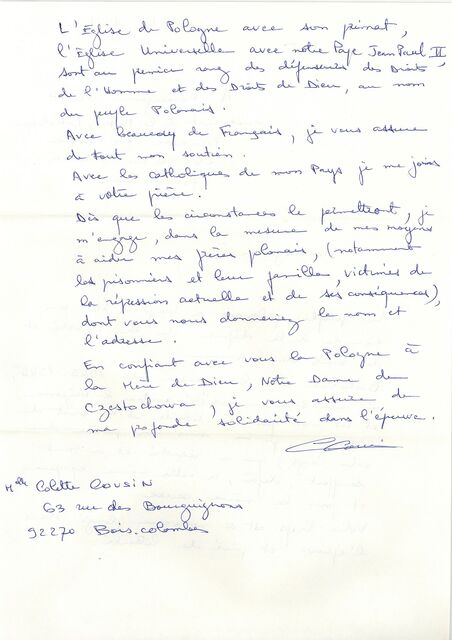 L'Église de Pologne avec son primat,
l'Église Universelle avec notre Pape Jean Paul II,
sont au premier rang des défenseurs des Droits
de l'Homme et des Droits de Dieu, au nom
du peuple Polonais.
Avec beaucoup de Français, je vous assure
de tout mon soutien.
Avec les catholiques de mon Pays je me joins
à votre prière.
Dès que les circonstances le permettront, je
m'engage, dans la mesure de mes moyens
à aider mes frères polonais, (notamment
les prisonniers et leur famille, victimes de
la répression actuelle et de ses conséquences),
dont vous nous donneriez le nom et
l'adresse.
En confiant avec vous la Pologne à
la Mère de Dieu, Notre Dame de
Czestochowa, je vous assure de
ma profonde solidarité dans l'épreuve.
Melle Colette COUSIN
63 rue des Bourguignons
92270 Bois-colombes